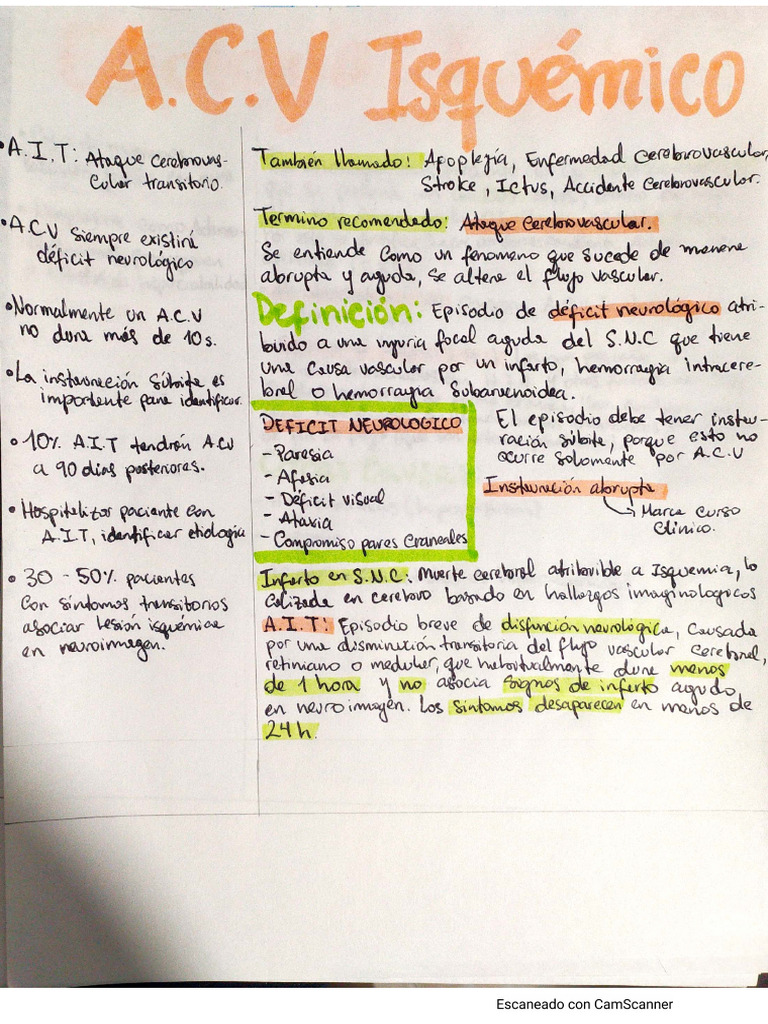 A.C.V Isquémico
• A.I.T: Ataque cerebrovas-
cular transitorio.
• A.C.V siempre existirá
déficit neurológico
• Normalmente un A.C.V
no dura más de 10s.
• La instauración súbita es
importante para identificar.
• 10% A.I.T tendrán A.C.V
a 90 dias posteriores.
• Hospitalizar paciente con
A.I.T, identificar etiologia
• 30 - 50% pacientes
con síntomas transitorios
asociar lesión isquémica
en neuroimagen.
También llamado: Apoplejía, Enfermedad cerebrovascular,
Stroke, Ictus, Accidente cerebrovascular.
Termino recomendado: Ataque cerebrovascular.
Se entiende como un fenomeno que sucede de manera
abrupta y aguda, se altera el flujo vascular.
Definición: Episodio de déficit neurológico atri-
buido a una injuria focal aguda del S.N.C que tiene
una causa vascular por un infarto, hemorragia intracere-
bral o hemorragia subaracnoidea.
DEFICIT NEUROLOGICO
- Paresia
- Afasia
- Déficit visual
- Ataxia
- Compromiso pares craneales
El episodio debe tener instau-
ración súbita, porque esto no
ocurre solamente por A.C.V
Instauración abrupta
→ Marca curso
clínico.
Infarto en S.N.C: Muerte cerebral atribuible a Isquemia, lo
calizada en cerebro basado en hallazgos imaginologicos
A.I.T: Episodio breve de disfunción neurológica, causada
por una disminución transitoria del flujo vascular cerebral,
retiniano o medular, que habitualmente dura menos
de 1 hora y no asocia signos de infarto agudo
en neuroimagen. Los síntomas desaparecen en menos de
24h.
Escaneado con CamScanner